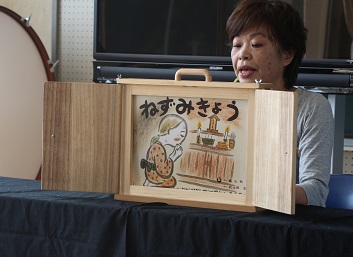 ねずみきょう